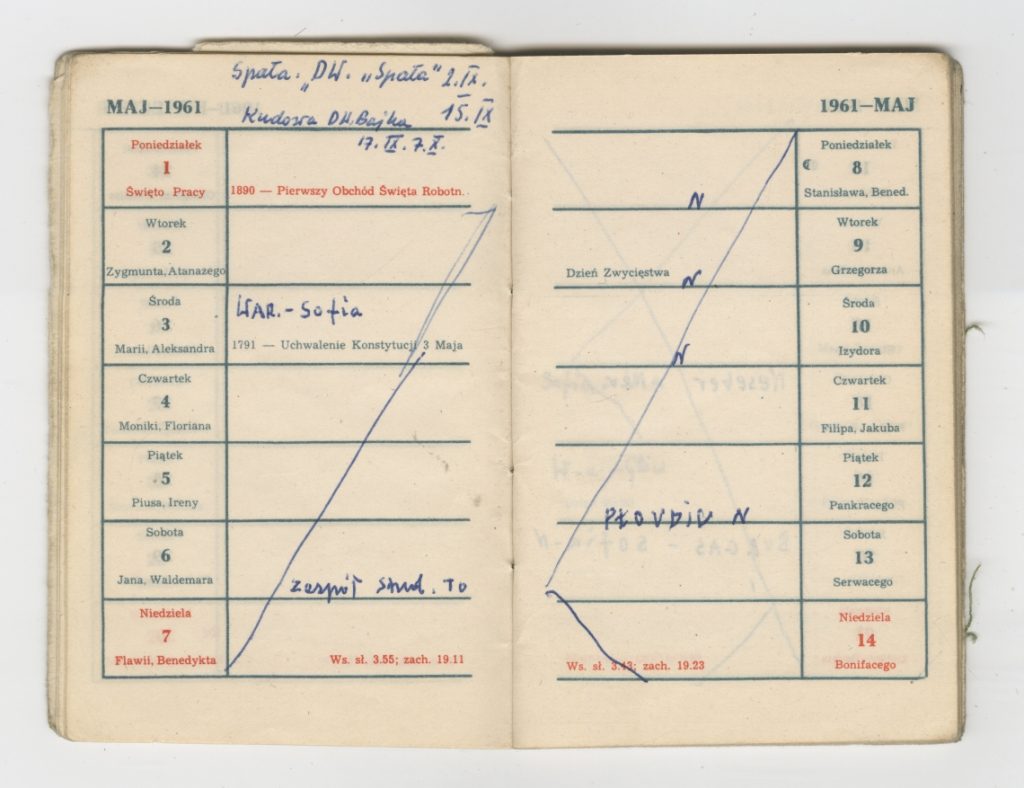 Spała. „DW. „Spała" 2.IX.
15.IX
MAJ—1961
Kudowa DW. Bajka
17.IX. 7.X.
Poniedziałek
1
Święto Pracy
1890 — Pierwszy Obchód Święta Robotn.
Wtorek
2
Zygmunta, Atanazego
Środa
3
Marii, Aleksandra
WAR. - Sofia
1791 — Uchwalenie Konstytucji 3 Maja
Czwartek
4
Moniki, Floriana
Piątek
5
Piusa, Ireny
Sobota
6
Jana, Waldemara
Zespół Stud. To
Niedziela
7
Flawii, Benedykta
Ws. sł. 3.55; zach. 19.11
1961—MAJ
Poniedziałek
8
Stanisława, Bened.
N
Wtorek
9
Grzegorza
Dzień Zwycięstwa
N
Środa
10
Izydora
N
Czwartek
11
Filipa, Jakuba
Piątek
12
Pankracego
PŁOVDIV N
Sobota
13
Serwacego
Niedziela
14
Bonifacego
Ws. sł. 3.43; zach. 19.23